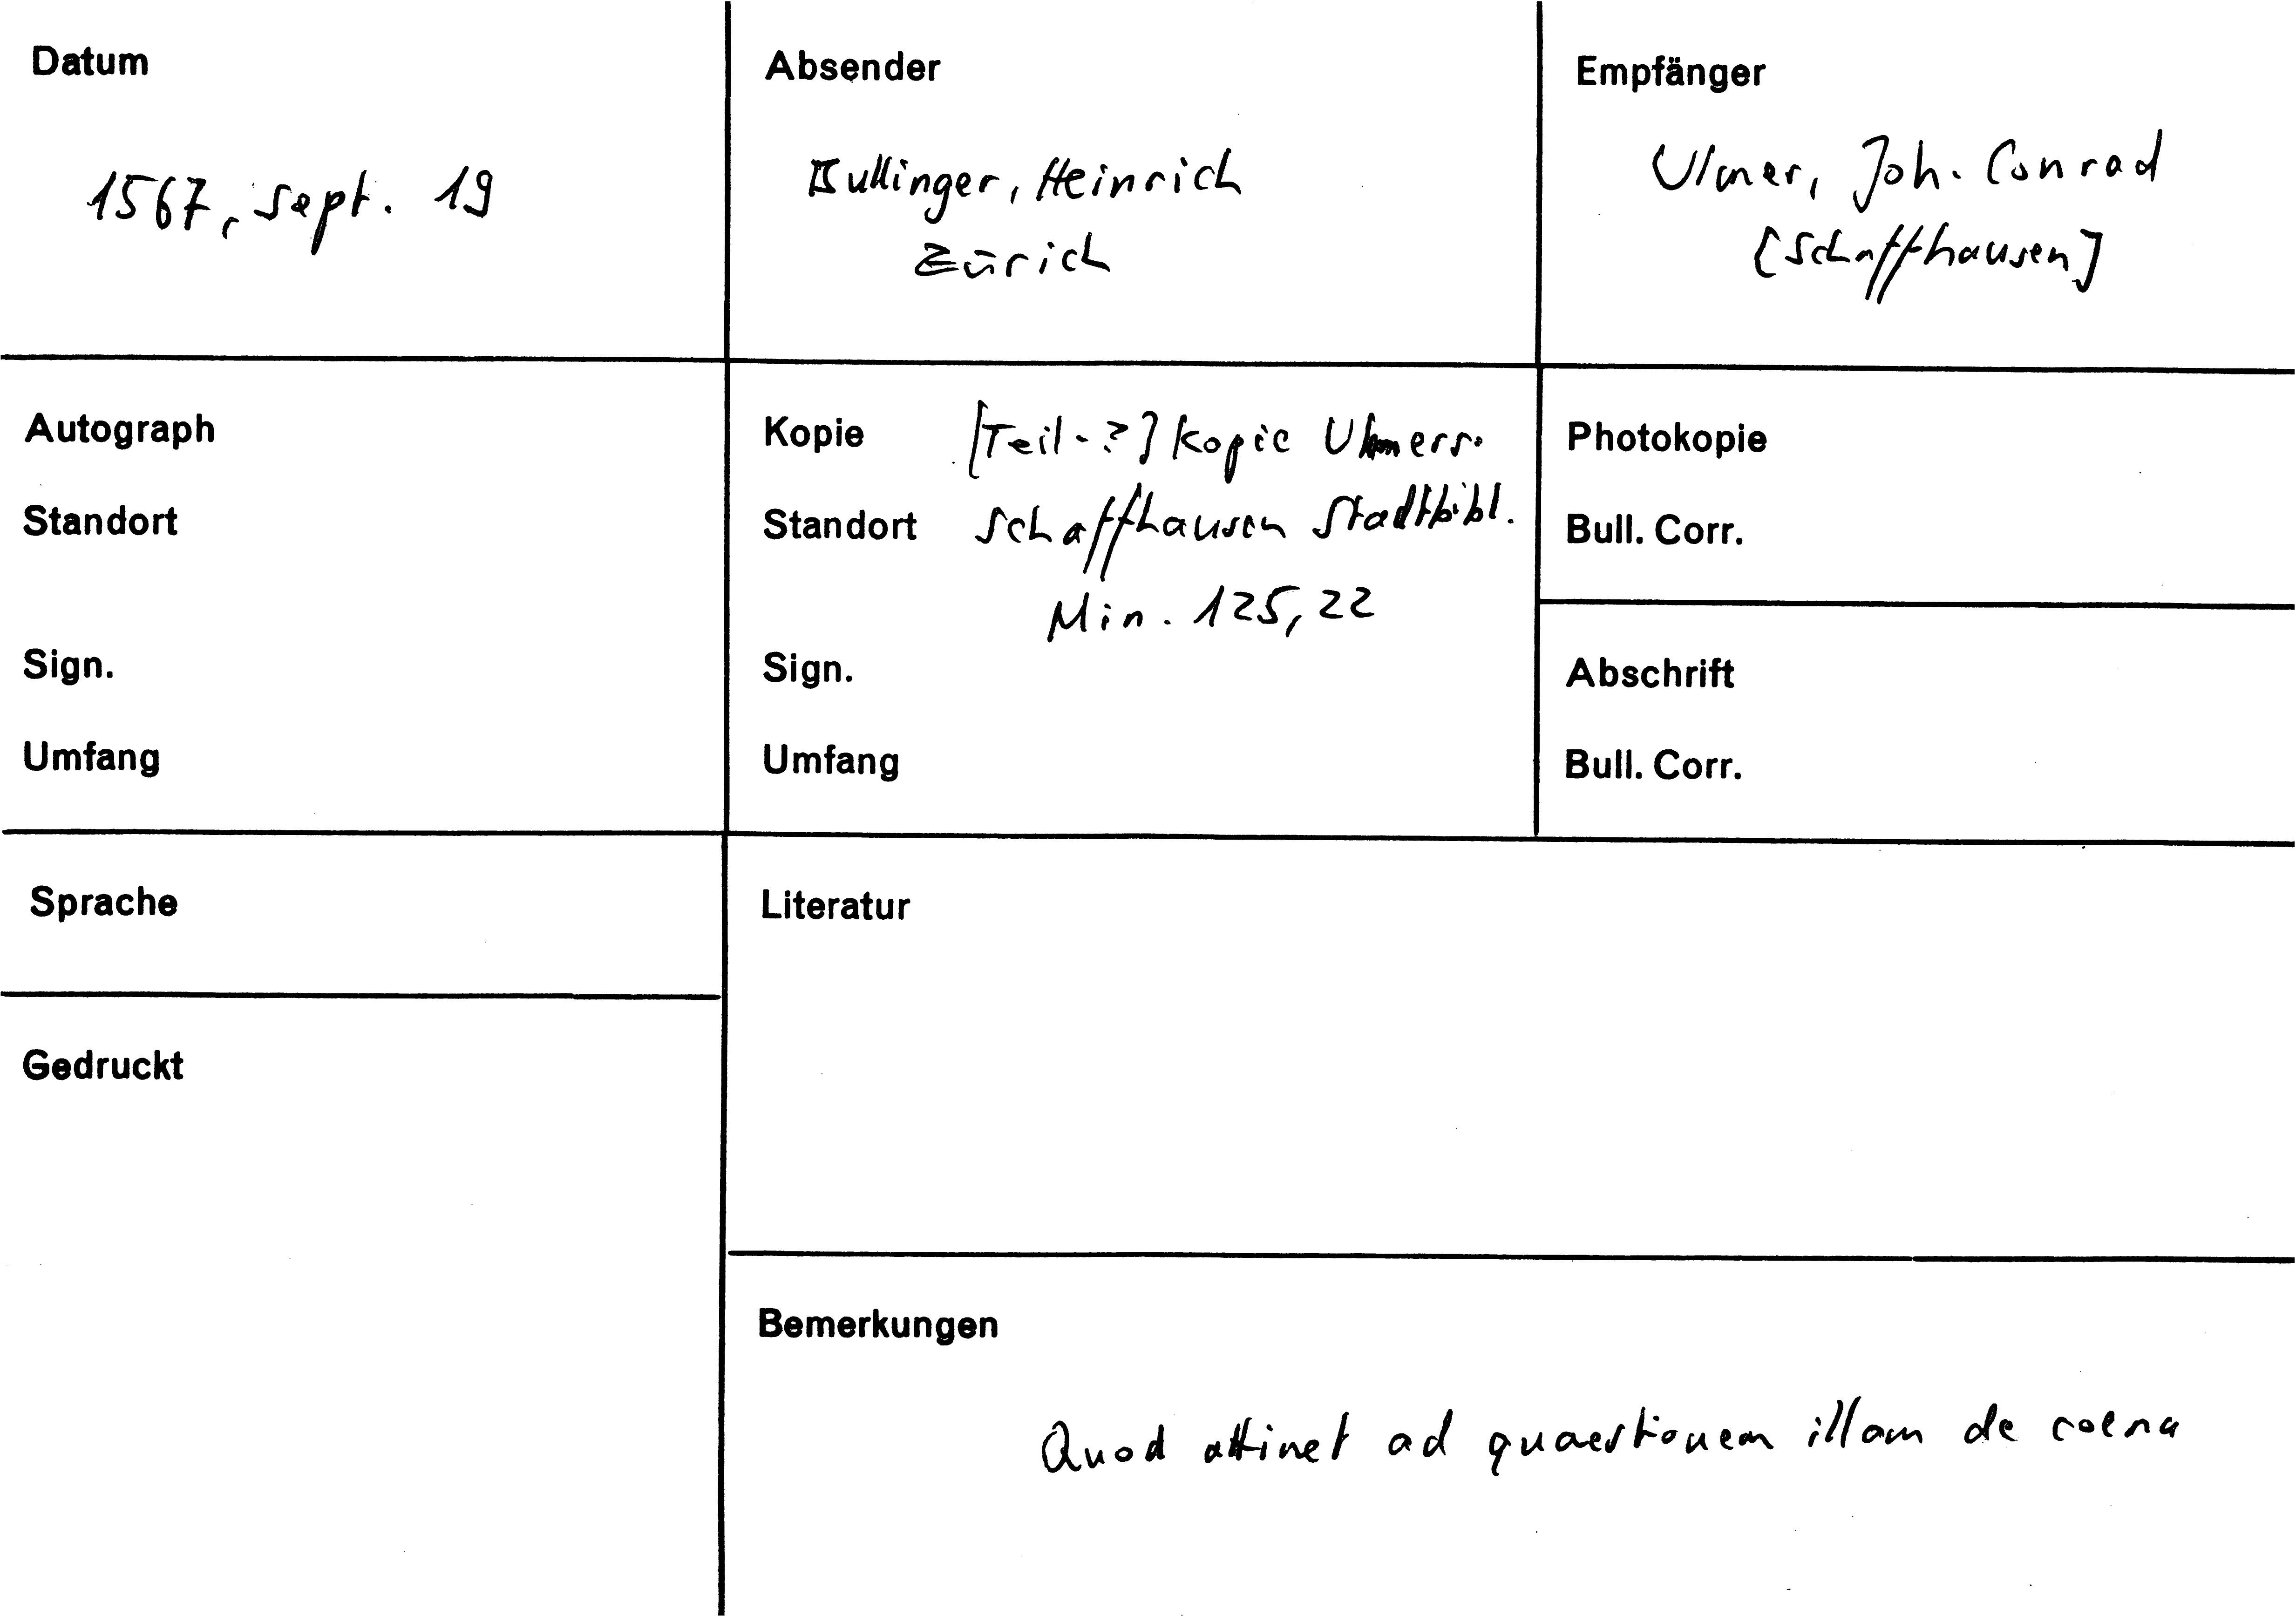 Datum
1567, Sept. 19
Absender
Bullinger, Heinrich
Zürich
Empfänger
Ulmer, Joh. Conrad
[Schaffhausen]
Autograph
Standort
Sign.
Umfang
Kopie [Teil-?] Kopie Ulmers.
Standort Schaffhausen Stadtbibl.
Min. 125, 22
Sign.
Umfang
Photokopie
Bull. Corr.
Abschrift
Bull. Corr.
Sprache
Gedruckt
Literatur
Bemerkungen
Quod attinet ad quaestionem illam de coena